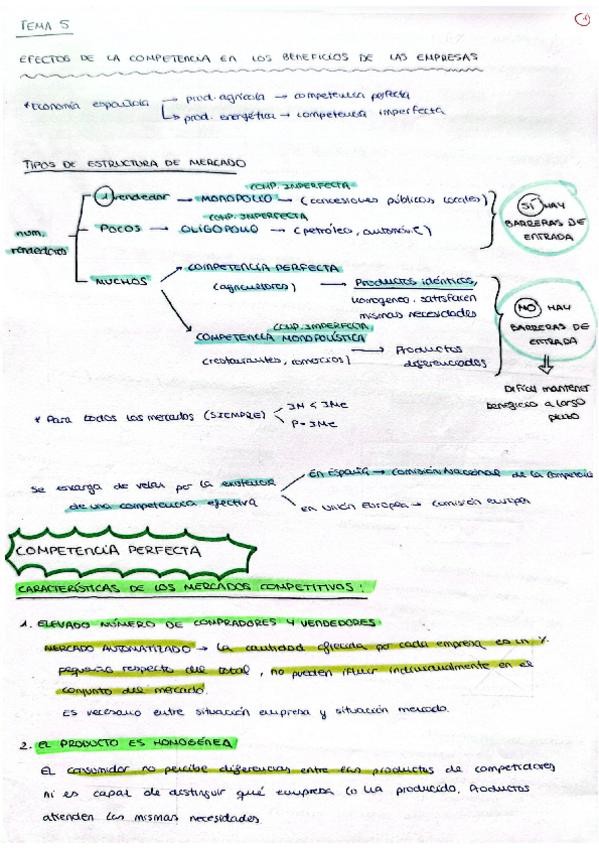 TEMA 5
EFECTOS DE LA COMPETENCIA EN LOS BENEFICIOS DE LAS EMPRESAS
* Economía española → prod. agrícola → competencia perfecta
↳ prod. energética → competencia imperfecta
TIPOS DE ESTRUCTURA DE MERCADO
COMP. IMPERFECTA
1 vendedor → MONOPOLIO → (concesiones públicas locales)
SÍ HAY
BARRERAS DE
ENTRADA
COMP. IMPERFECTA
num. vendedores
POCOS → OLIGOPOLIO → (petróleo, automóv.)
MUCHOS
COMPETENCIA PERFECTA
(agricultores) → Productos idénticos,
homogéneo. satisfacen
mismas necesidades
NO HAY
BARRERAS DE
ENTRADA
COMP. IMPERFECTA
COMPETENCIA MONOPOLÍSTICA
(restaurantes, comercios) → Productos
diferenciados
Difícil mantener
beneficio a largo
plazo
* Para todos los mercados (SIEMPRE)
IM < IMe
P = IMe
Se encarga de velar por la existencia
de una competencia efectiva
En España → Comisión Nacional de la Competencia
en Unión Europea → Comisión europea
COMPETENCIA PERFECTA
CARACTERÍSTICAS DE LOS MERCADOS COMPETITIVOS:
1. ELEVADO NÚMERO DE COMPRADORES Y VENDEDORES
MERCADO AUTOMATIZADO → La cantidad ofrecida por cada empresa es un %
pequeño respecto del total, no pueden influir individualmente en el
conjunto del mercado.
ES necesario entre situación empresa y situación mercado.
2. EL PRODUCTO ES HOMOGÉNEA
EL consumidor no percibe diferencias entre los productos de competidores
ni es capaz de distinguir qué empresa lo ha producido. Productos
atienden las mismas necesidades